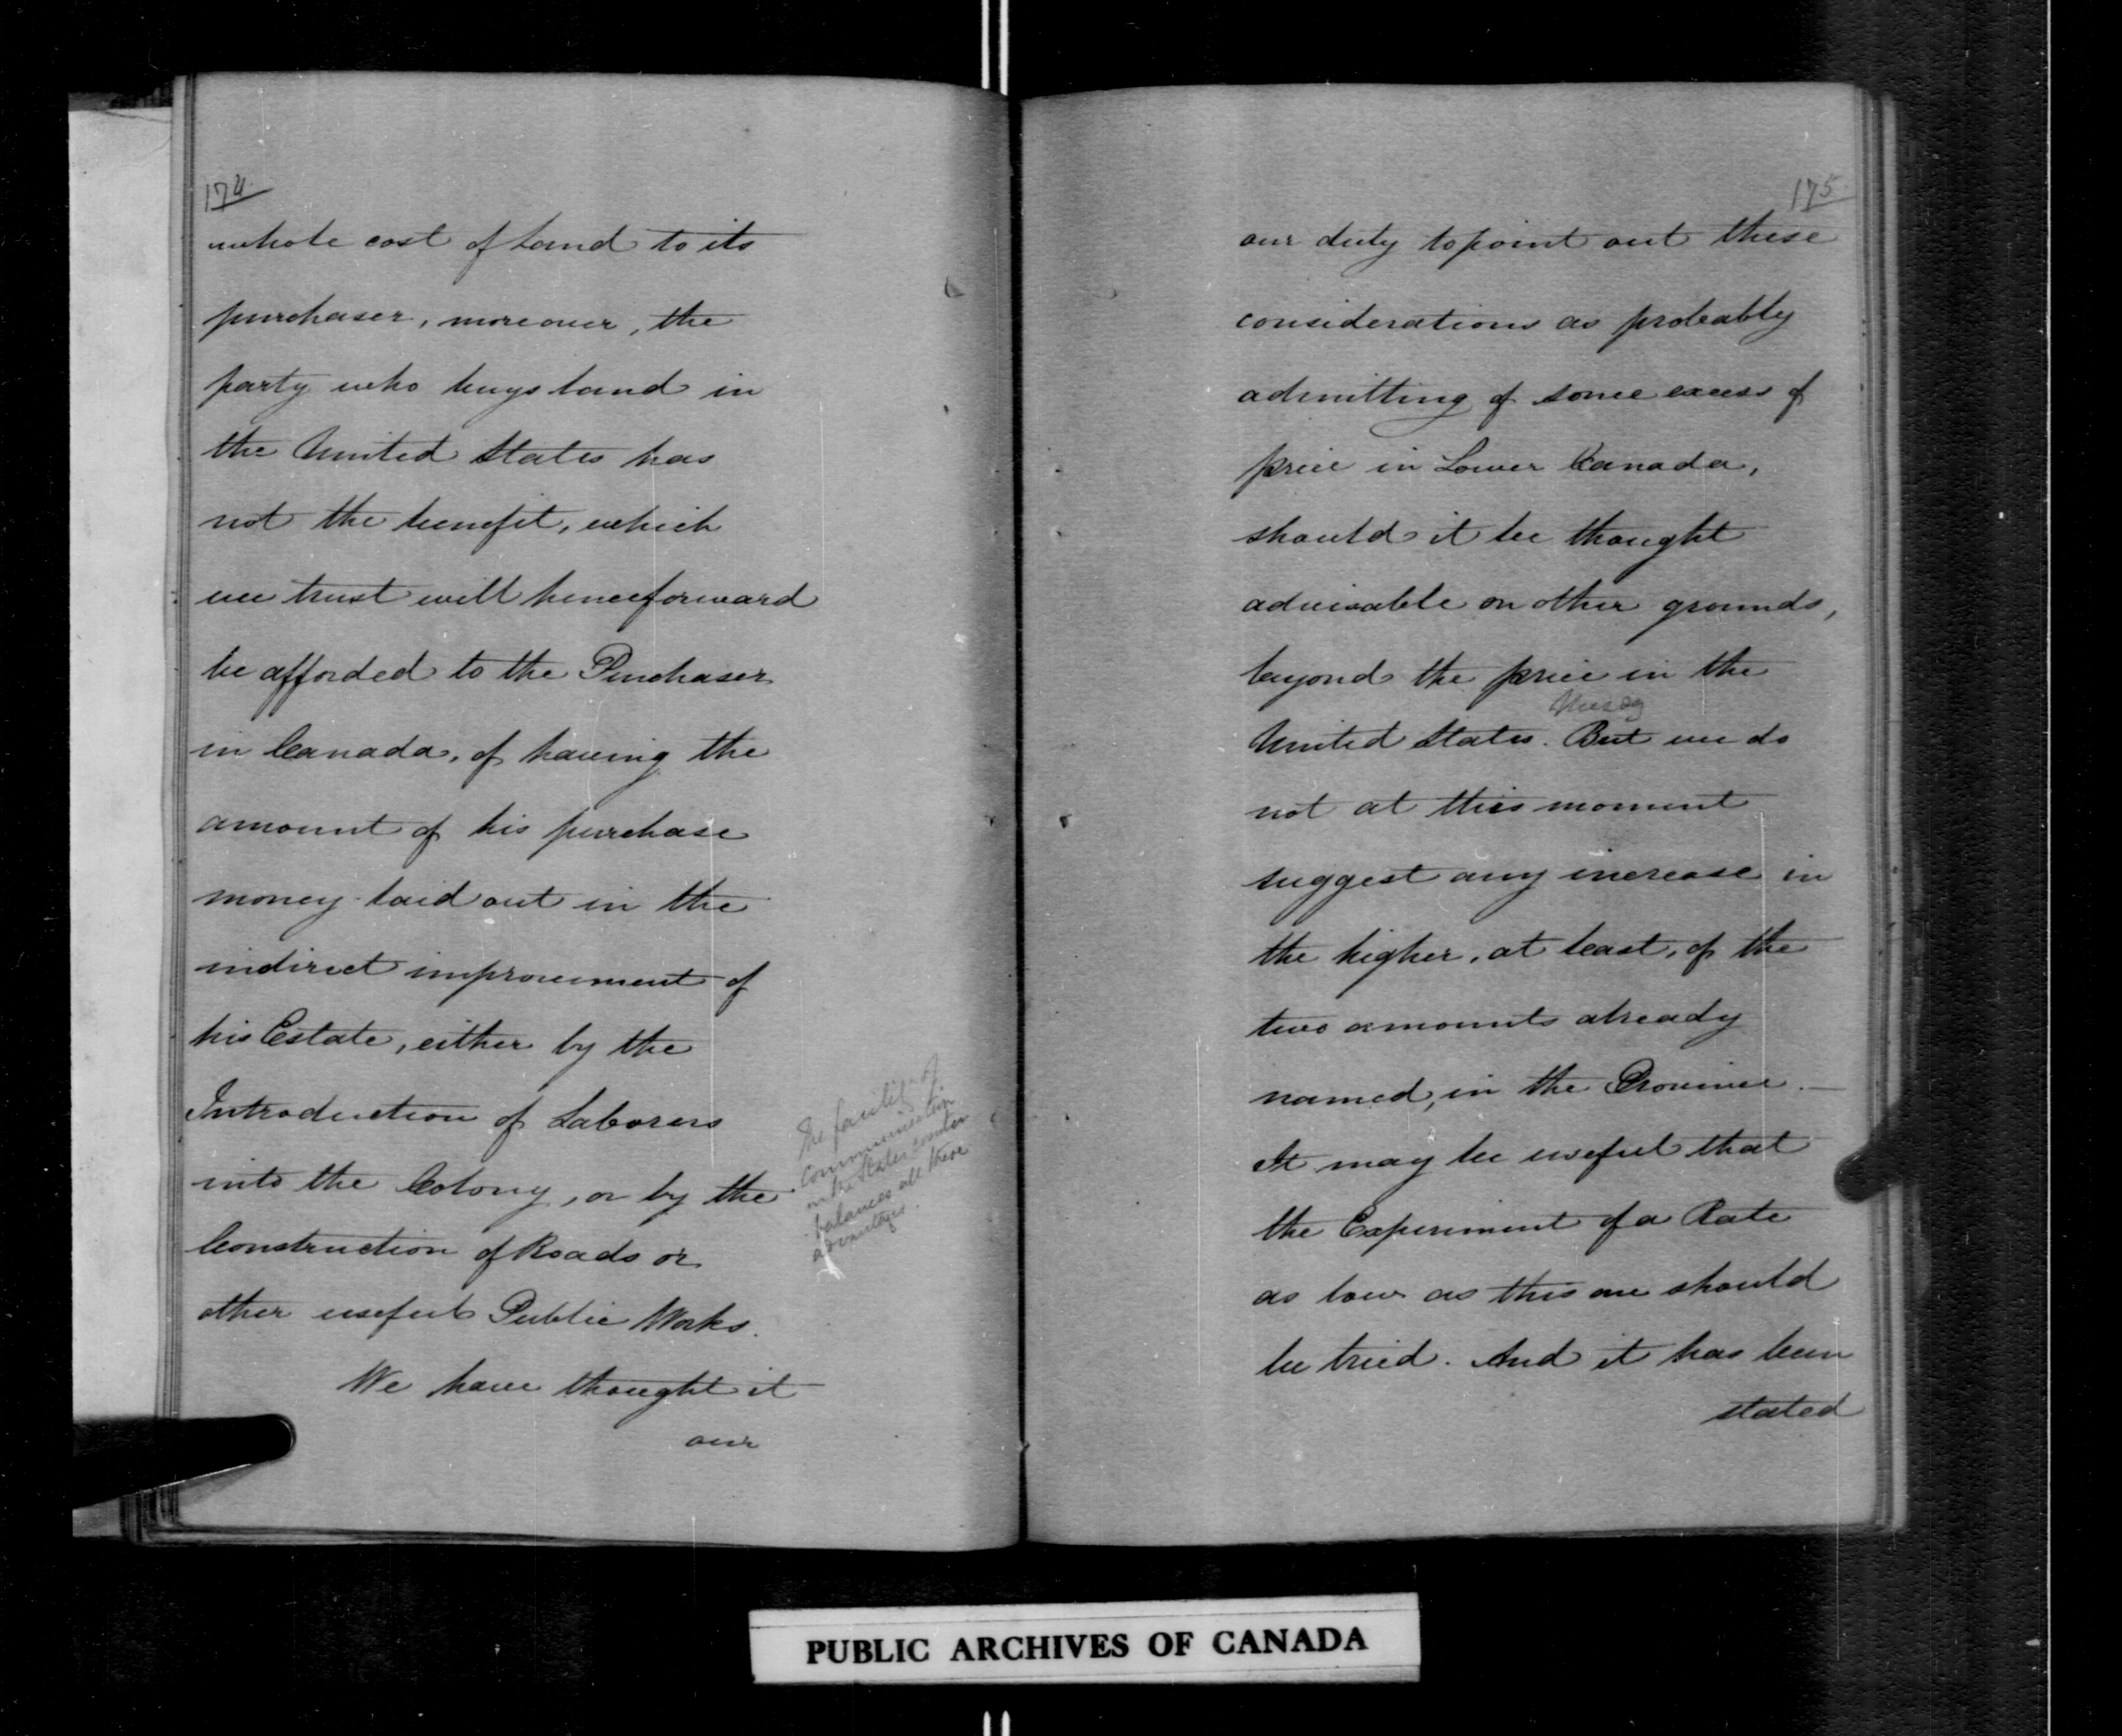 174
whole cost of Land to its
purchaser, moreover, the
party who buys land in
the United States has
not the benefit, which
we trust will henceforward
be afforded to the Purchaser
in Canada, of having the
amount of his purchase
money laid out in the
indirect improvement of
his Estate, either by the
Introduction of Laborers
into the Colony, or by the
Construction of Roads or
other useful Public Works.
We have thought it
our
The facility of
communication
in the States counter
balances all these
advantages.
175
our duty to point out these
considerations as probably
admitting of some excess of
price in Lower Canada,
should it be thought
advisable on other grounds,
beyond the price in the
United States. But we do
not at this moment
suggest any increase in
the higher, at least, of the
two amounts already
named, in the Province.
It may be useful that
the Experiment of a Rate
as low as this one should
be tried. And it has been
stated
PUBLIC ARCHIVES OF CANADA